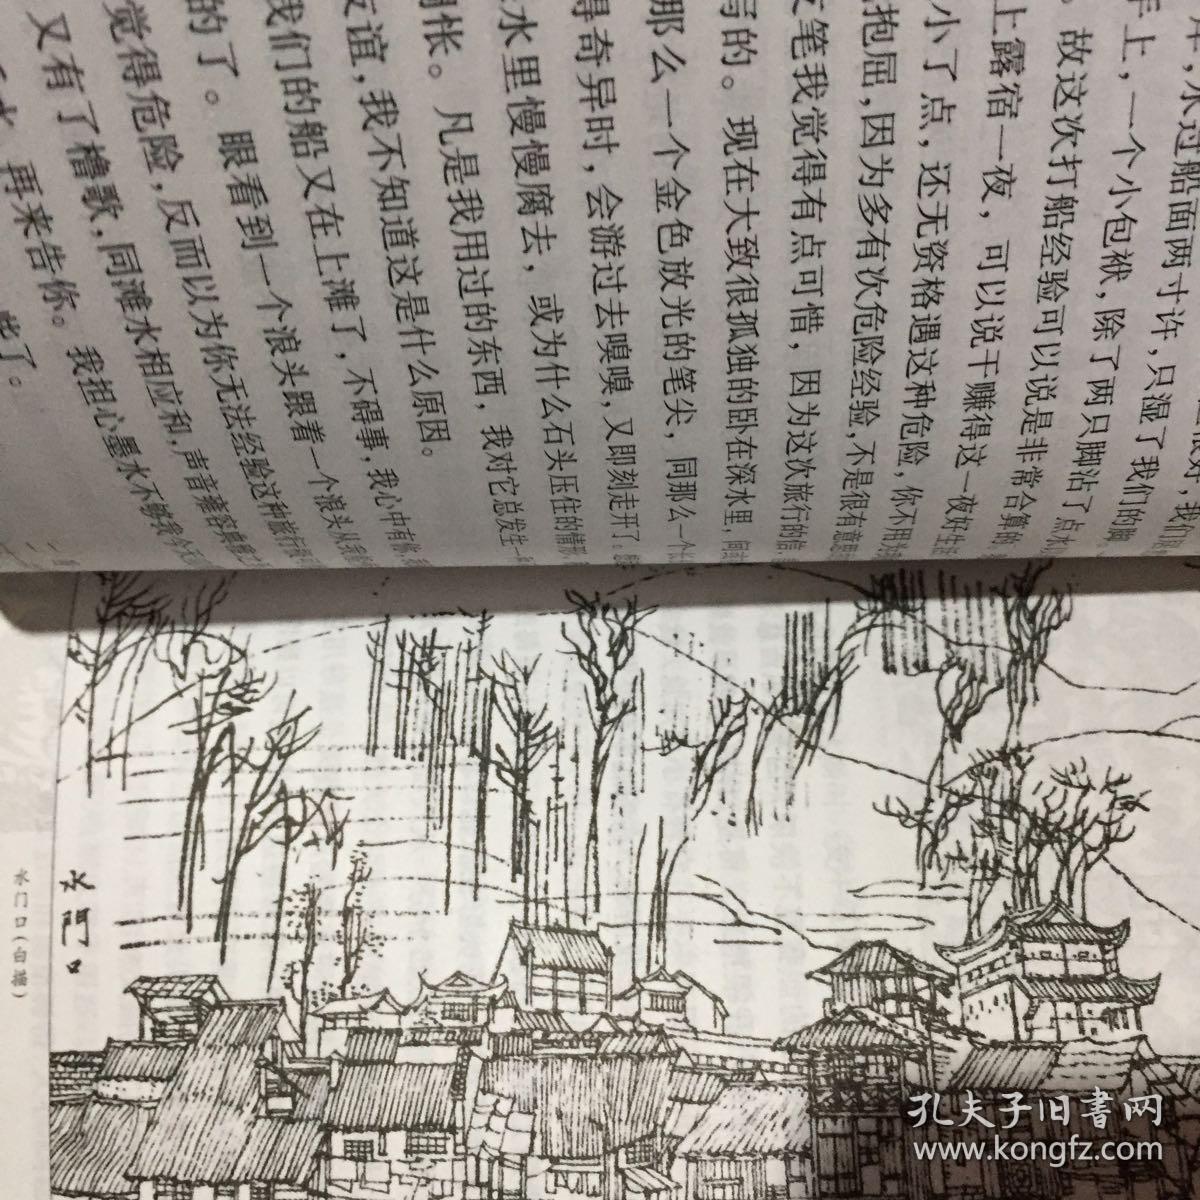 很好，我们
水过船面两寸许，只湿了我们的脚
手上，一个小包袱，除了两只脚沾了点水
。故这次打船经验可以说是非常合算的。
上露宿一夜，可以说干赚得这一夜好生
小了点，还无资格遇这种危险，你不用为
抱屈，因为多有次危险经验，不是很有意思
支笔我觉得有点可惜，因为这次旅行的信
写的。现在大致很孤独的卧在深水里，间
那么一个金色放光的笔尖，同那么一个长
得奇异时，会游过去嗅嗅，又即刻走开了。
水里慢慢腐去，或为什么石头压住的情形
惆怅。凡是我用过的东西，我对它总发生一
友谊，我不知道这是什么原因。
我们的船又在上滩了，不碍事，我心中有你，
的了。眼看到一个浪头跟着一个浪头从我
觉得危险，反而以为你无法经验这种旅行
又有了橹歌，同滩水相应和，声音雍容典雅之
再来告你。我担心墨水不够我今天
些了。
水门口
水门口（白描）
孔夫子旧书网
www.kongfz.com